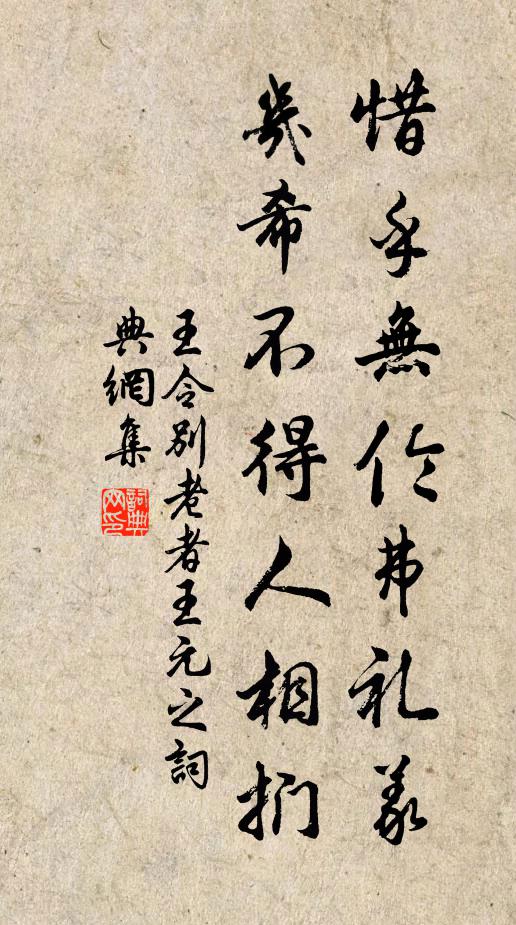 惜乎無弗礼義
幾希不得人相扪
王令别老者王元之詞
典網集
詞典
网印